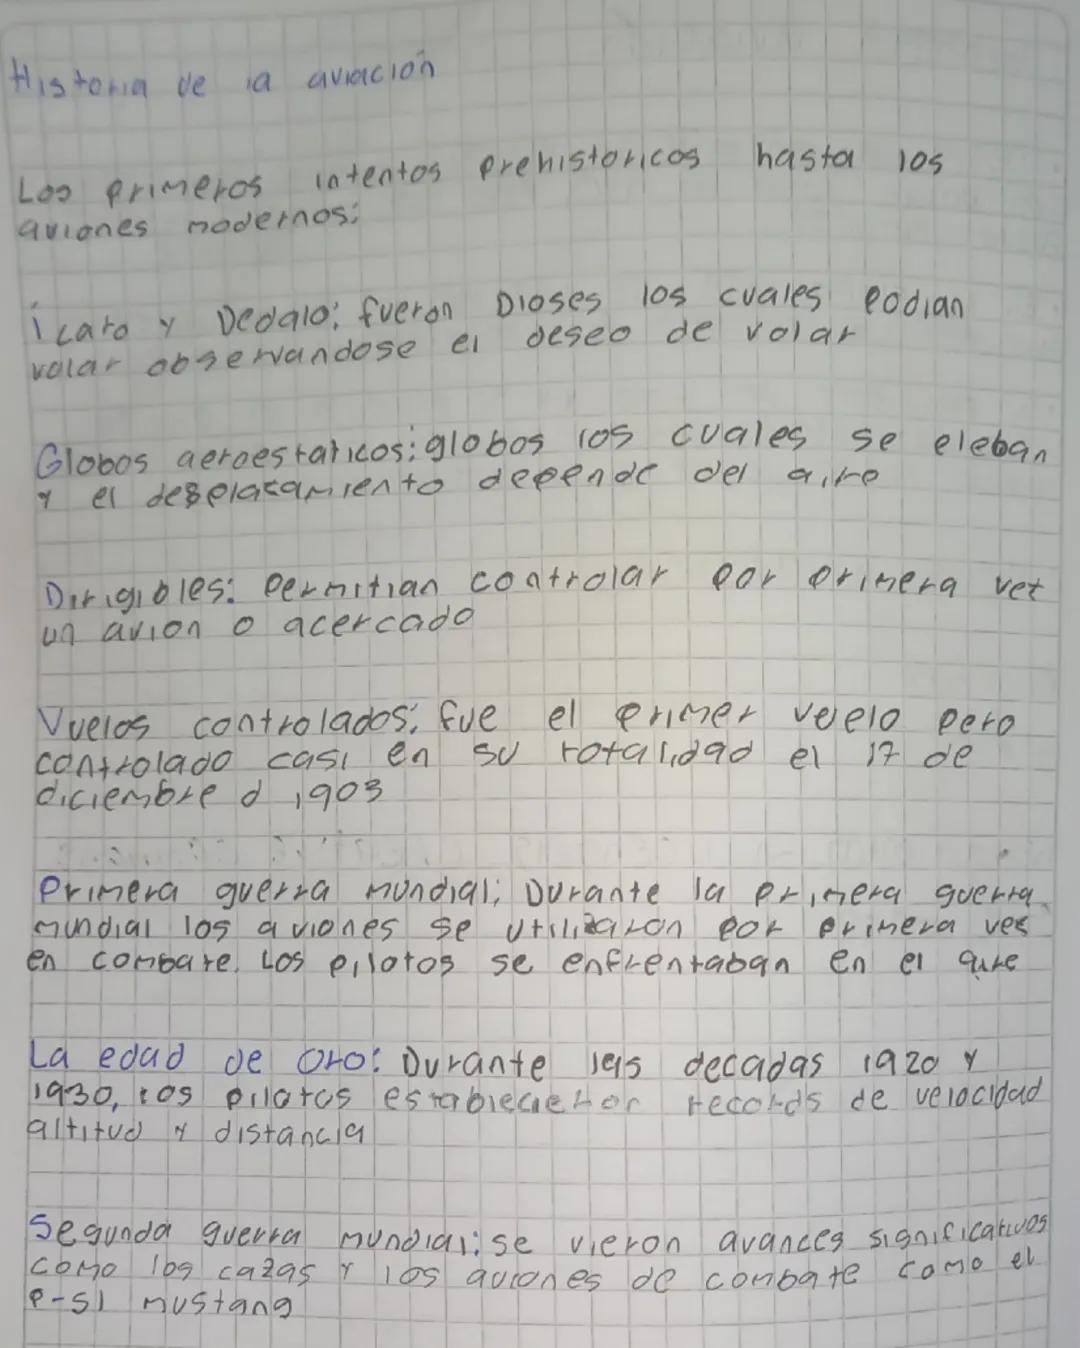 Historia de la aviación
Los primeros intentos prehistoricos hasta los
aviones modernos:
Ícaro y Dedalo: fueron Dioses los cuales podian
volar observandose el deseo de volar
Globos aeroestaticos: globos los cuales se eleban
y el desplasamiento depende del aire
Dirigibles: Permitian controlar por primera vez
un avion o acercado
Vuelos controlados: fue el primer vuelo pero
controlado casi en su totalidad el 17 de
diciembre d 1903
Primera guerra mundial: Durante la primera guerra
mundial los aviones se utilizaron por primera ves
en combate. Los pilotos se enfrentaban en el aire
La edad de oro: Durante las decadas 1920 y
1930, los pilotos establecieron records de velocidad
altitud y distancia
Segunda guerra mundial: se vieron avances significativos
como los cazas y los aviones de combate como el
P-51 mustang